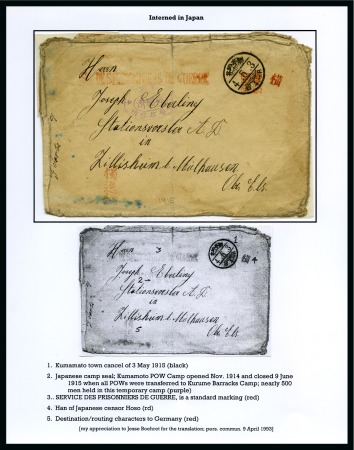 Interned in Japan
Herrn
SERVICE DES PRISONNIERS DE GUERRE
Joseph Eberliny
Stationsvorsteher A. D.
in
Zillisheim b. Mülhausen
Ober Els.
1915
1
Herrn 3
4
Joseph Eberliny
2
Stationsvorsteher A. D.
in
Zillisheim b. Mülhausen
5 Ober Els.
1. Kumamato town cancel of 3 May 1915 (black)
2. Japanese camp seal; Kumamoto POW Camp opened Nov. 1914 and closed 9 June
1915 when all POWs were transferred to Kurume Barracks Camp; nearly 500
men held in this temporary camp (purple)
3.. SERVICE DES PRISONNIERS DE GUERRE, is a standard marking (red)
4. Han of Japanese censor Hoso (rd)
5. Destination/routing characters to Germany (red)
[my appreciation to Jesse Bochrot for the translation; pers. commun. 9 April 1993]